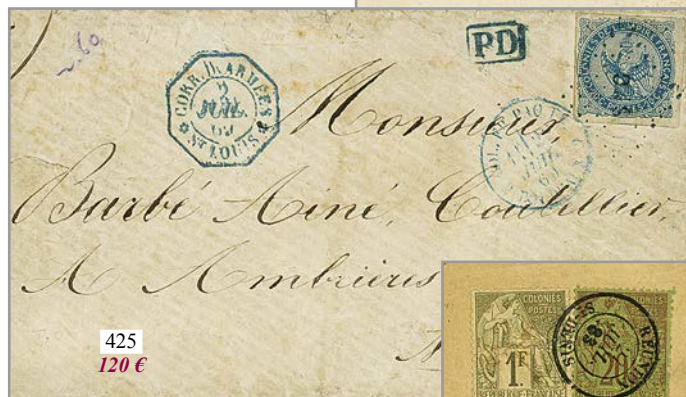 PD
CORR. D. ARMÉES
2
JUIL.
69
ST LOUIS
COLONIES DE L'EMPIRE FRANÇAIS
Monsieur,
Barbé Ainé, Coutellier,
A Ambrières
425
120 €
COLONIES
POSTES
1F
REPUBLIQUE FRANÇAISE
RÉUNION
ST-DENIS
20